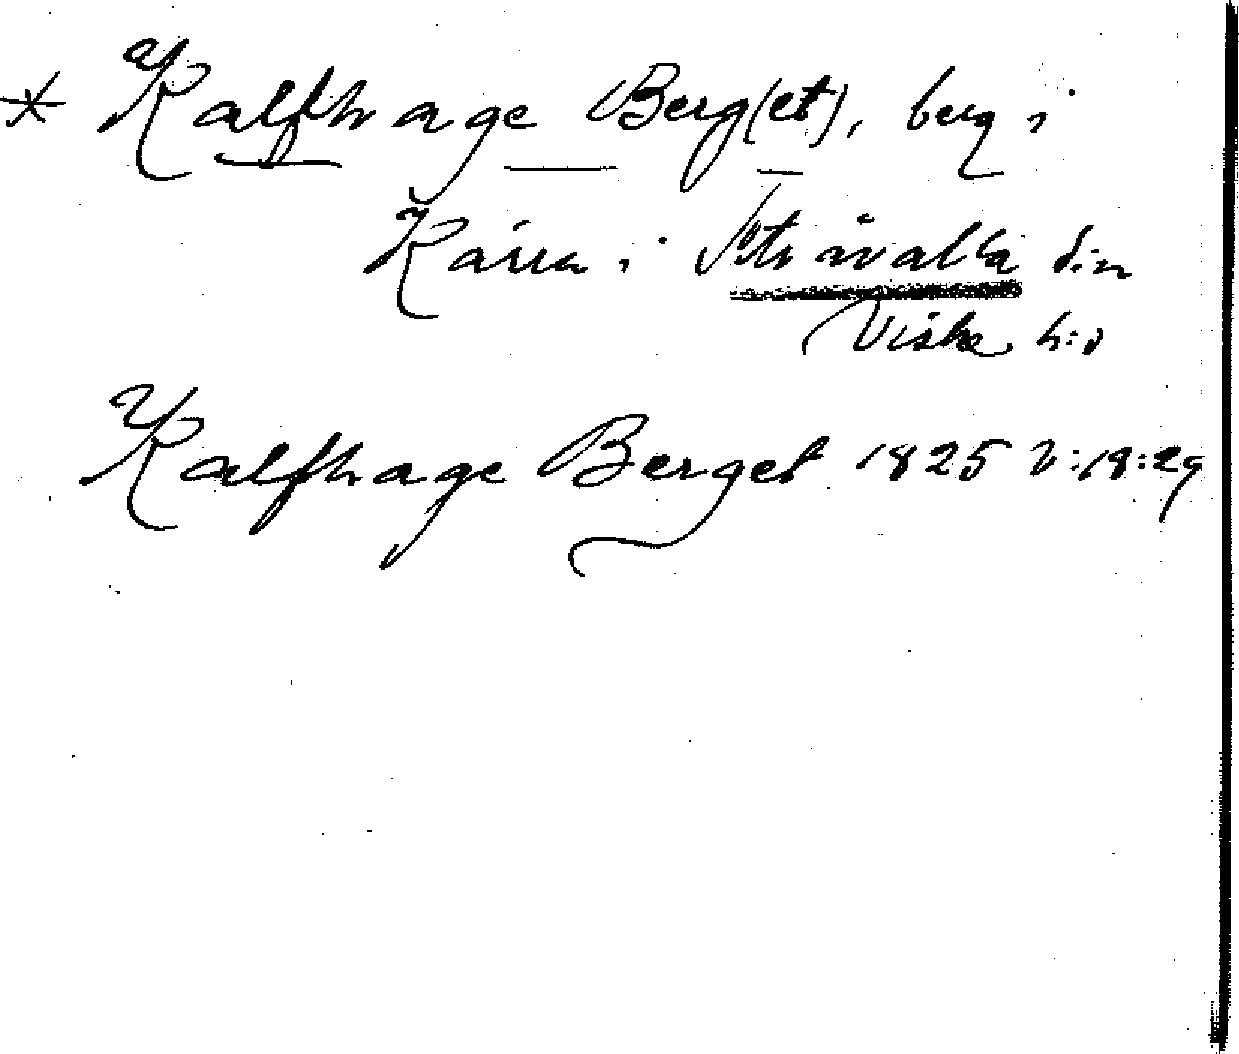 * Kalfhage Berg(et), berg i
Kärra i Stråvalla s:n
Viske h:d
Kalfhage Berget 1825 2:18:29